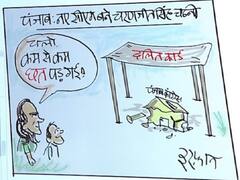 पंजाब: नए सीएम बने चरणजीत सिंह चन्नी
चलो
कम से कम
छत पड़ गई!
दलित कार्ड
पंजाब कांग्रेस
इरफान